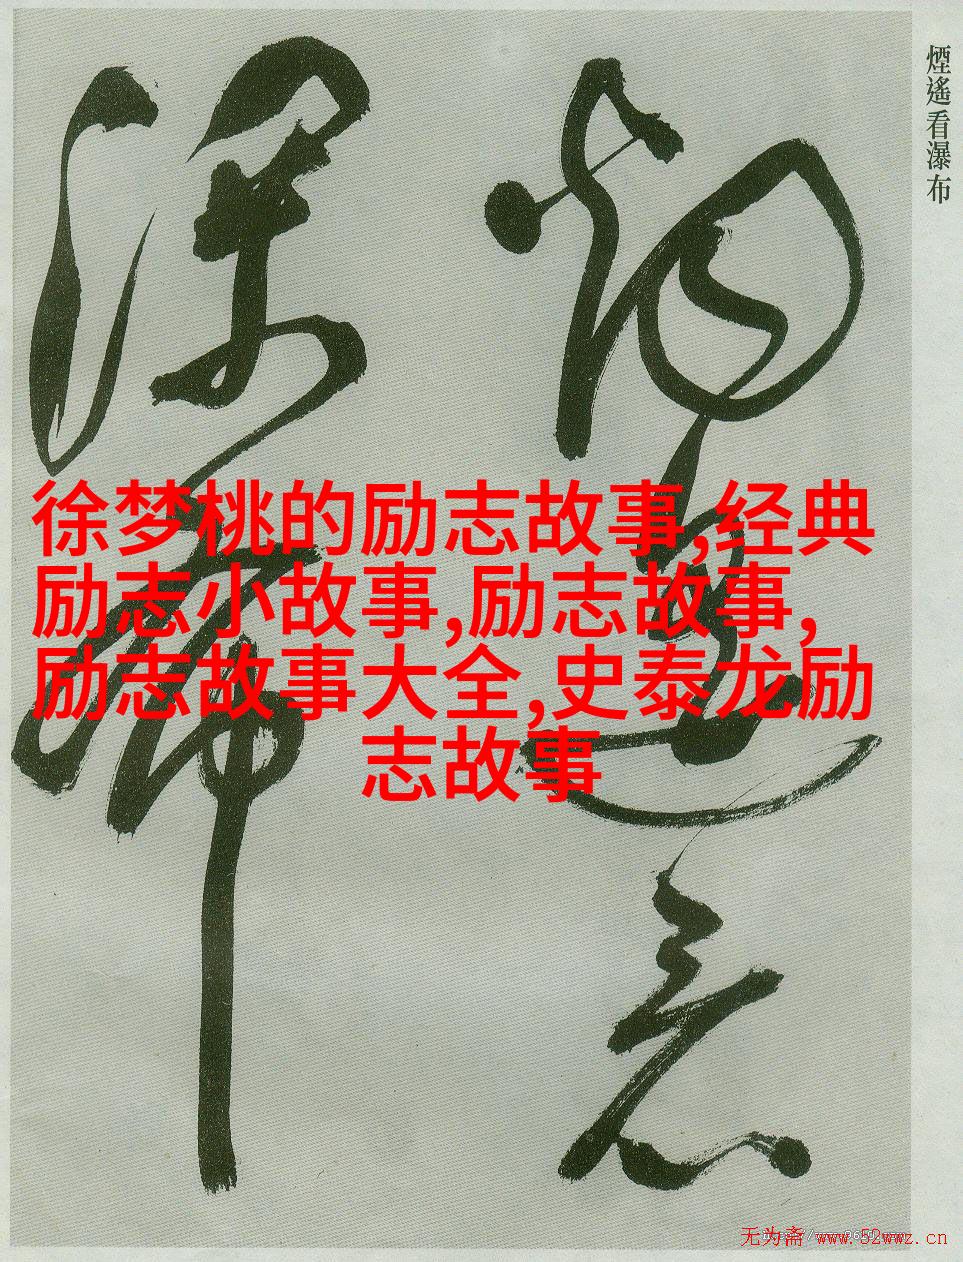 煙遙看瀑布
徐梦桃的励志故事,经典
励志小故事,励志故事,
励志故事大全,史泰龙励
志故事
无为斋 www.52wwz.cn